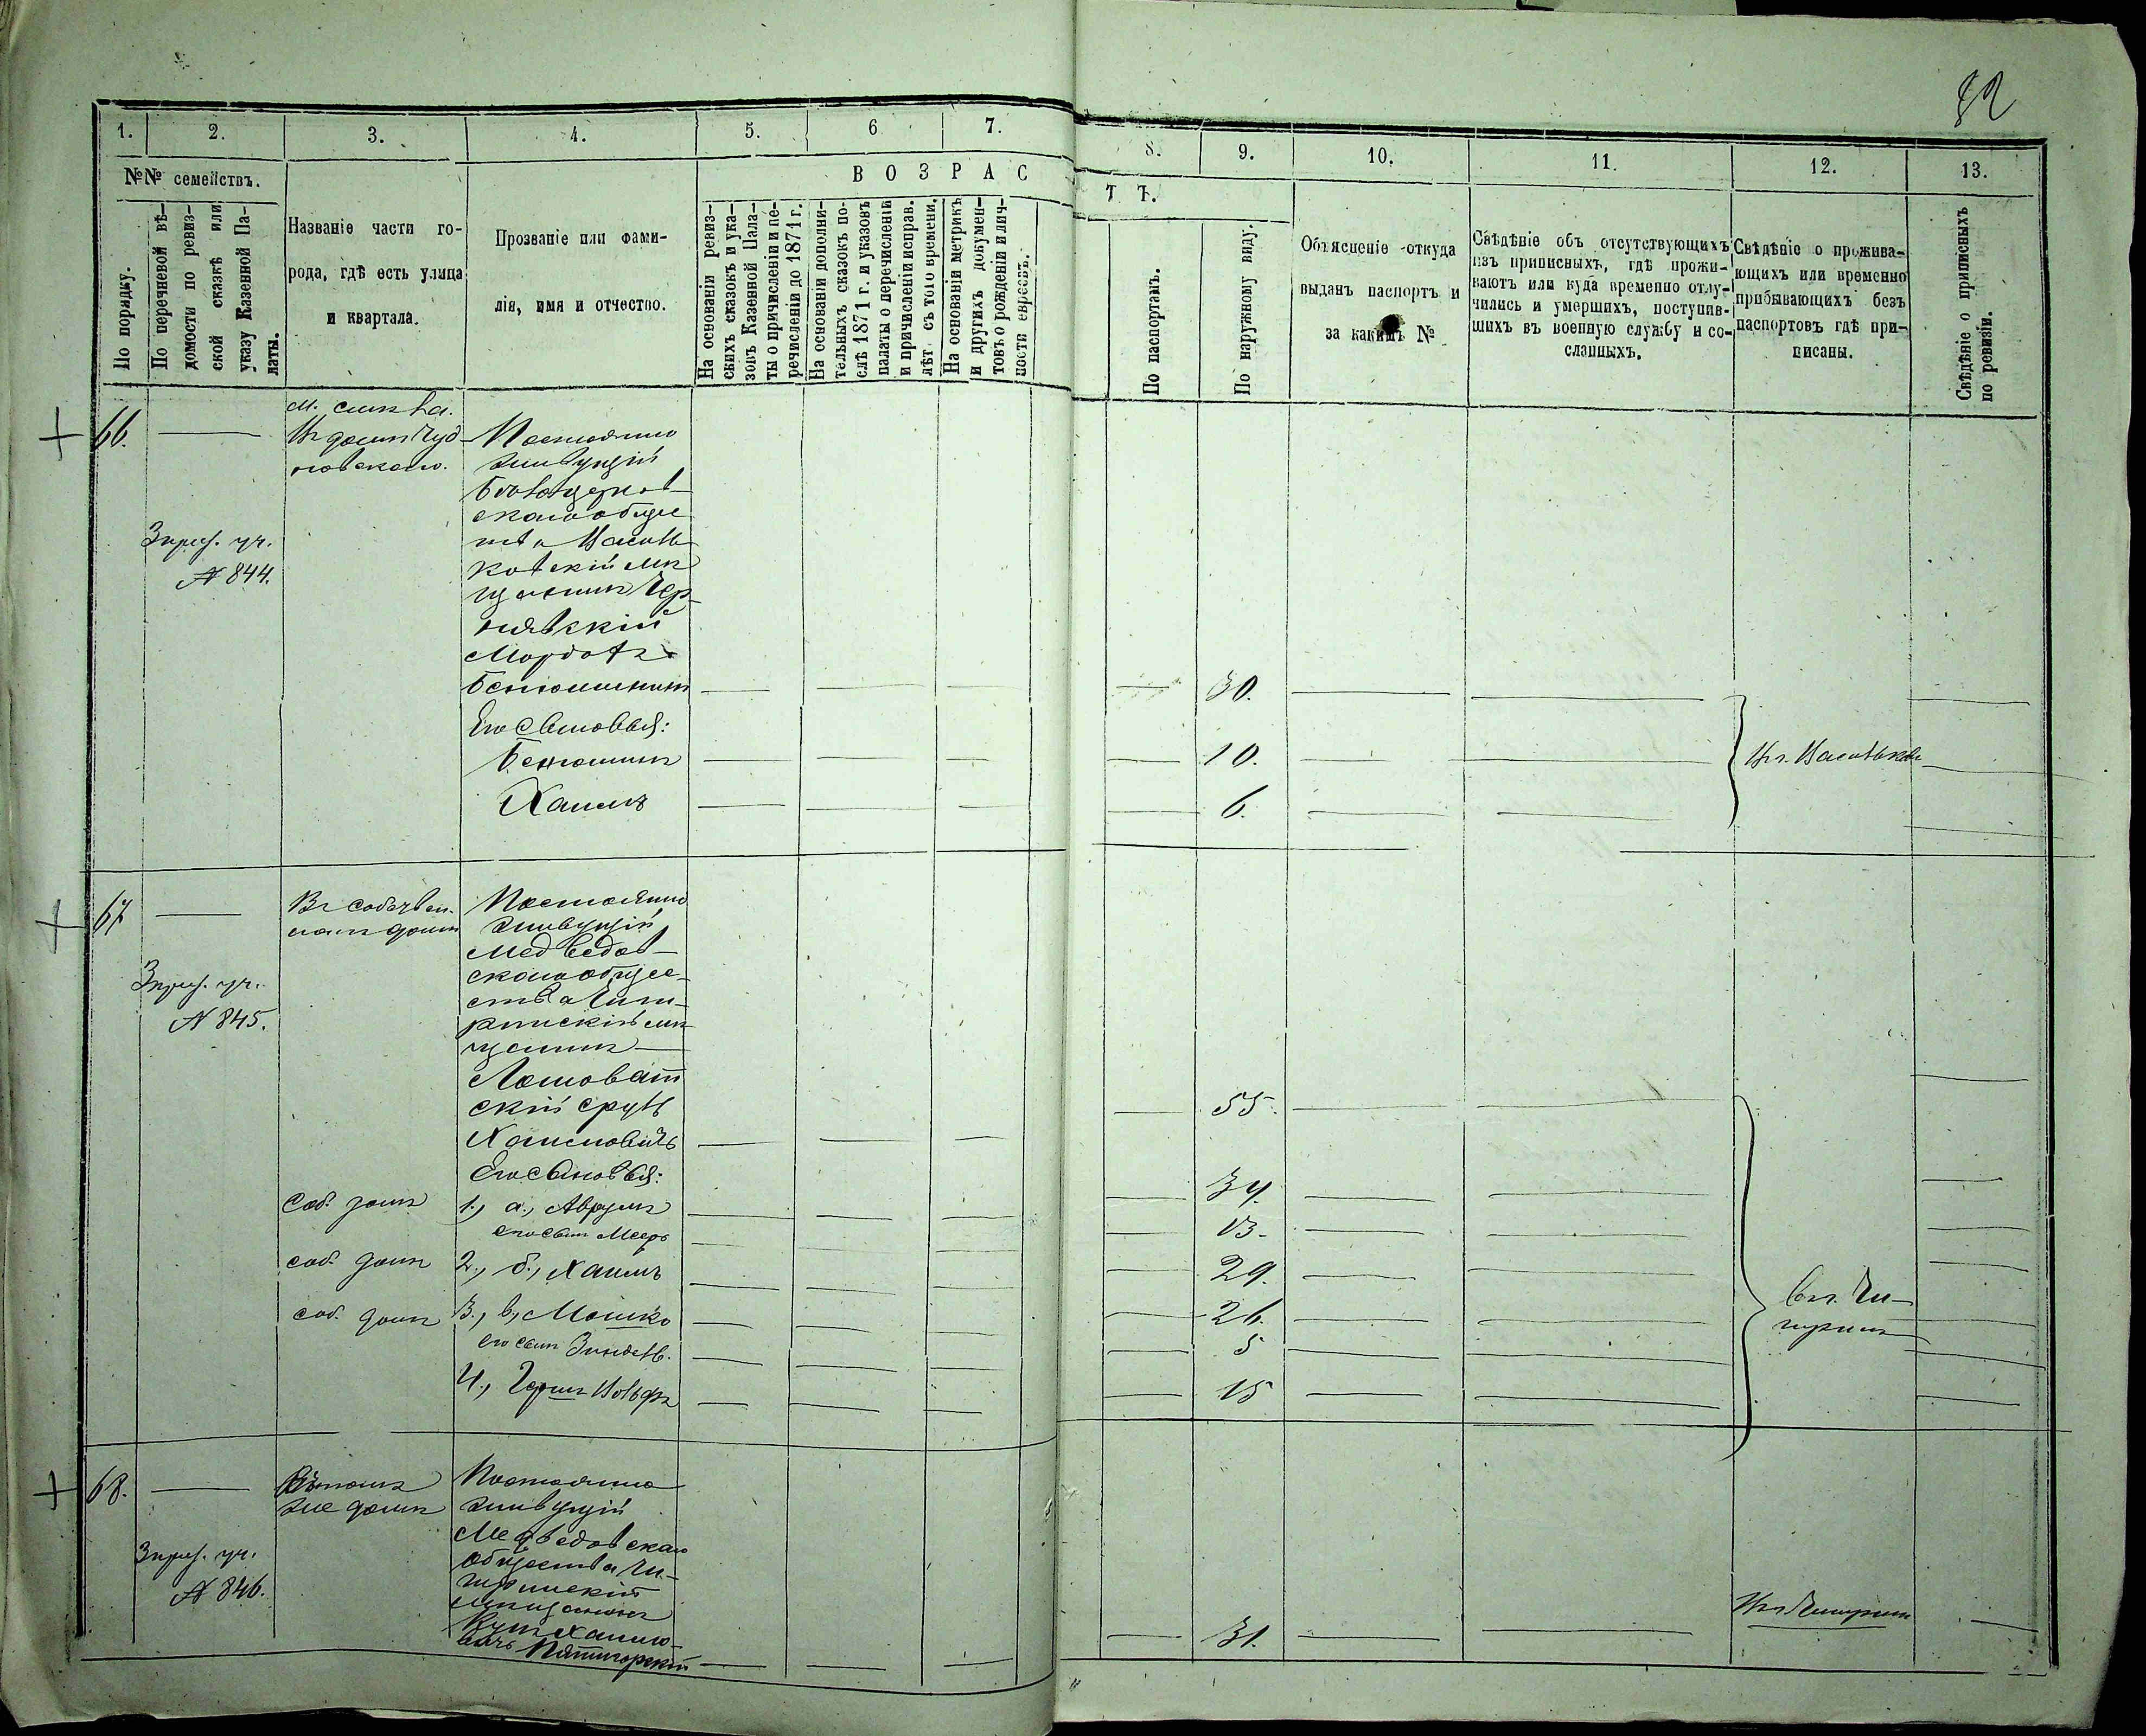 1. 2. 3. 4. 5. 6 7. 8. 9. 10. 11. 12. 13.
№№ семействъ.
По порядку.
По перечневой вѣ-
домости по ревиз-
ской сказкѣ или
указу Казенной Па-
латы.
Названіе части го-
рода, гдѣ есть улица
и квартала.
Прозваніе или фами-
лія, имя и отчество.
ВОЗРАСТЪ.
На основаніи ревиз-
скихъ сказокъ и ука-
зовъ Казенной Пала-
ты о причисленіи и пе-
речисленіи до 1871 г.
На основаніи дополни-
тельныхъ сказокъ по-
слѣ 1871 г. и указовъ
палаты о перечисленіи
и причисленіи исправ.
лѣт съ того времени.
На основаніи метрикъ
и другихъ докумен-
товъ о рожденіи и лич-
ности евреевъ.
По паспортамъ.
По наружному виду.
Объясненіе откуда
выданъ паспортъ и
за какимъ №
Свѣдѣніе объ отсутствующихъ
изъ приписныхъ, гдѣ прожи-
ваютъ или куда временно отлу-
чились и умершихъ, поступив-
шихъ въ военную службу и со-
сланныхъ.
Свѣдѣніе о прожива-
ющихъ или временно
прибывающихъ безъ
паспортовъ гдѣ при-
писаны.
Свѣдѣніе о приписныхъ
по ревизіи.
66.
Постоянно
живущій
Бѣлоцерков-
скаго общес
тва Василь
ковскій мѣ
щанинъ Чер-
нявскій
Мордко
Бенюминовъ 30.
Его сыновья:
Бенюминъ 10. Въ г. Васильковѣ
Хаимъ 6.
3 приз. уч.
№ 844.
67
Въ собствен-
номъ домѣ
Постоянно
живущій
Медведов-
скаго общес-
тва Чиги-
ринскій мѣ
щанинъ
скій Сруль 55.
Хаимовичъ
Его сыновья:
Соб. домъ 1., а., Аврумъ 34.
его сынъ Мееръ 13.
соб. домъ 2., б., Хаимъ 29.
соб. домъ 3., в., Мошко 26.
его сынъ Зиндель. 5
4., Гершъ Вольфъ 15
Въ г. Чи-
гиринѣ
3 приз. уч.
№ 845.
68.
Въ томъ
же домѣ
Постоянно
живущій
Медведовскаго
общества Чи-
гиринскій
мѣщанинъ
Хаимо-
вичъ Пятигорскій 31. Въ г. Чигиринѣ
3 приз. уч.
№ 846.